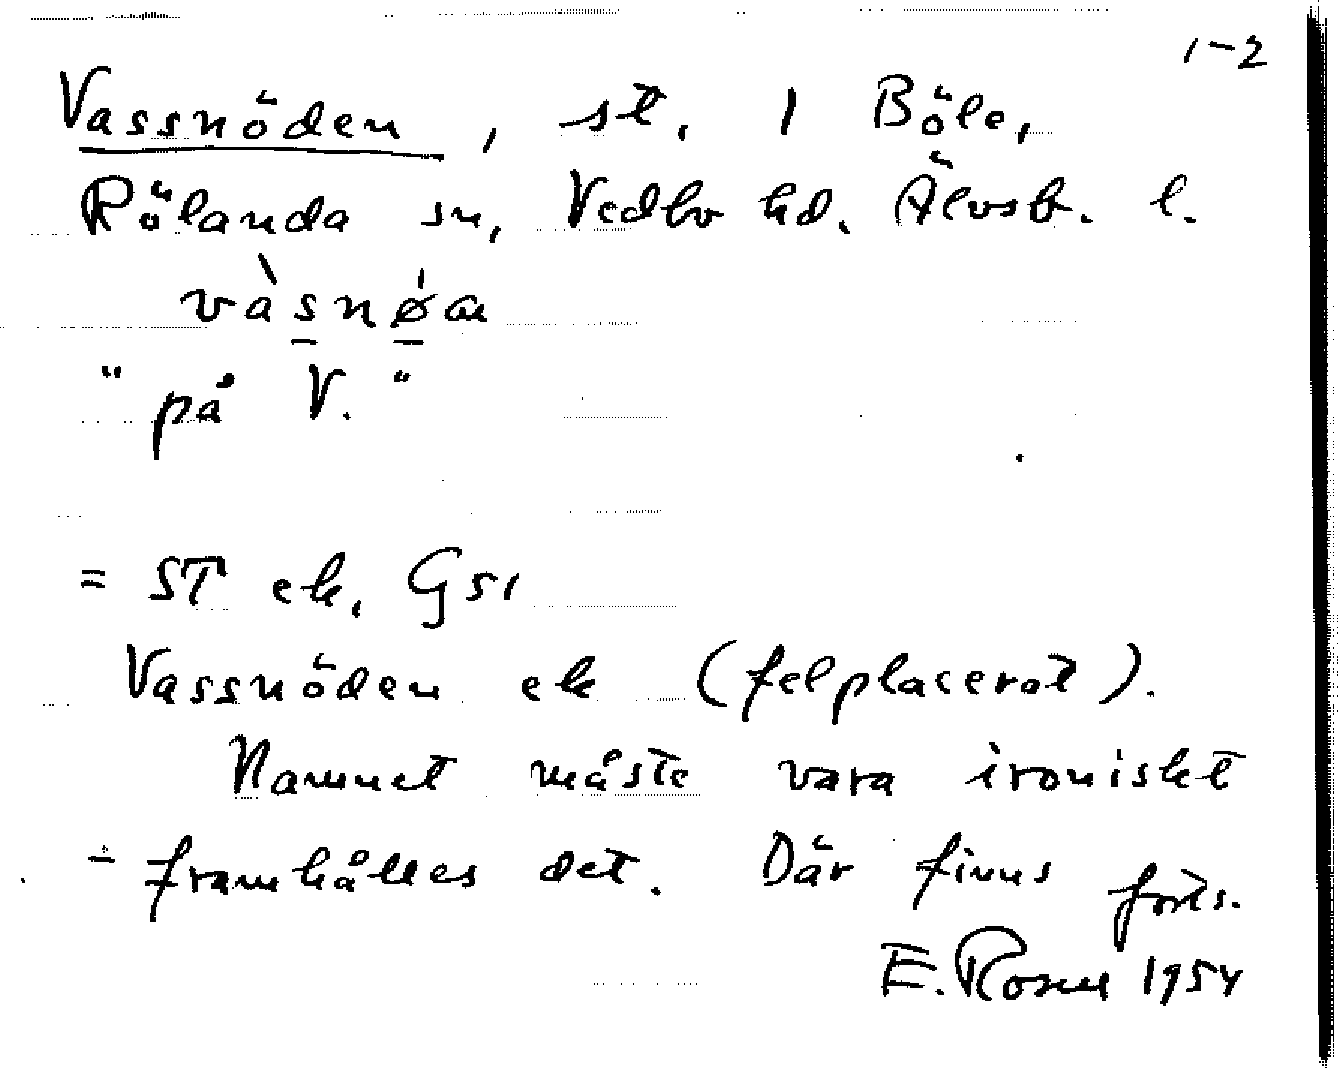 1-2
Vassnöden, st. 1 Böle,
Rölanda sn, Vedbo hd. Älvsb. l.
vàsnøa
"på V."
= ST ek. G51
Vassnöden ek (felplacerat).
Namnet måste vara ironiskt
- framhålles det. Där finns forts.
E. Rosell 1954